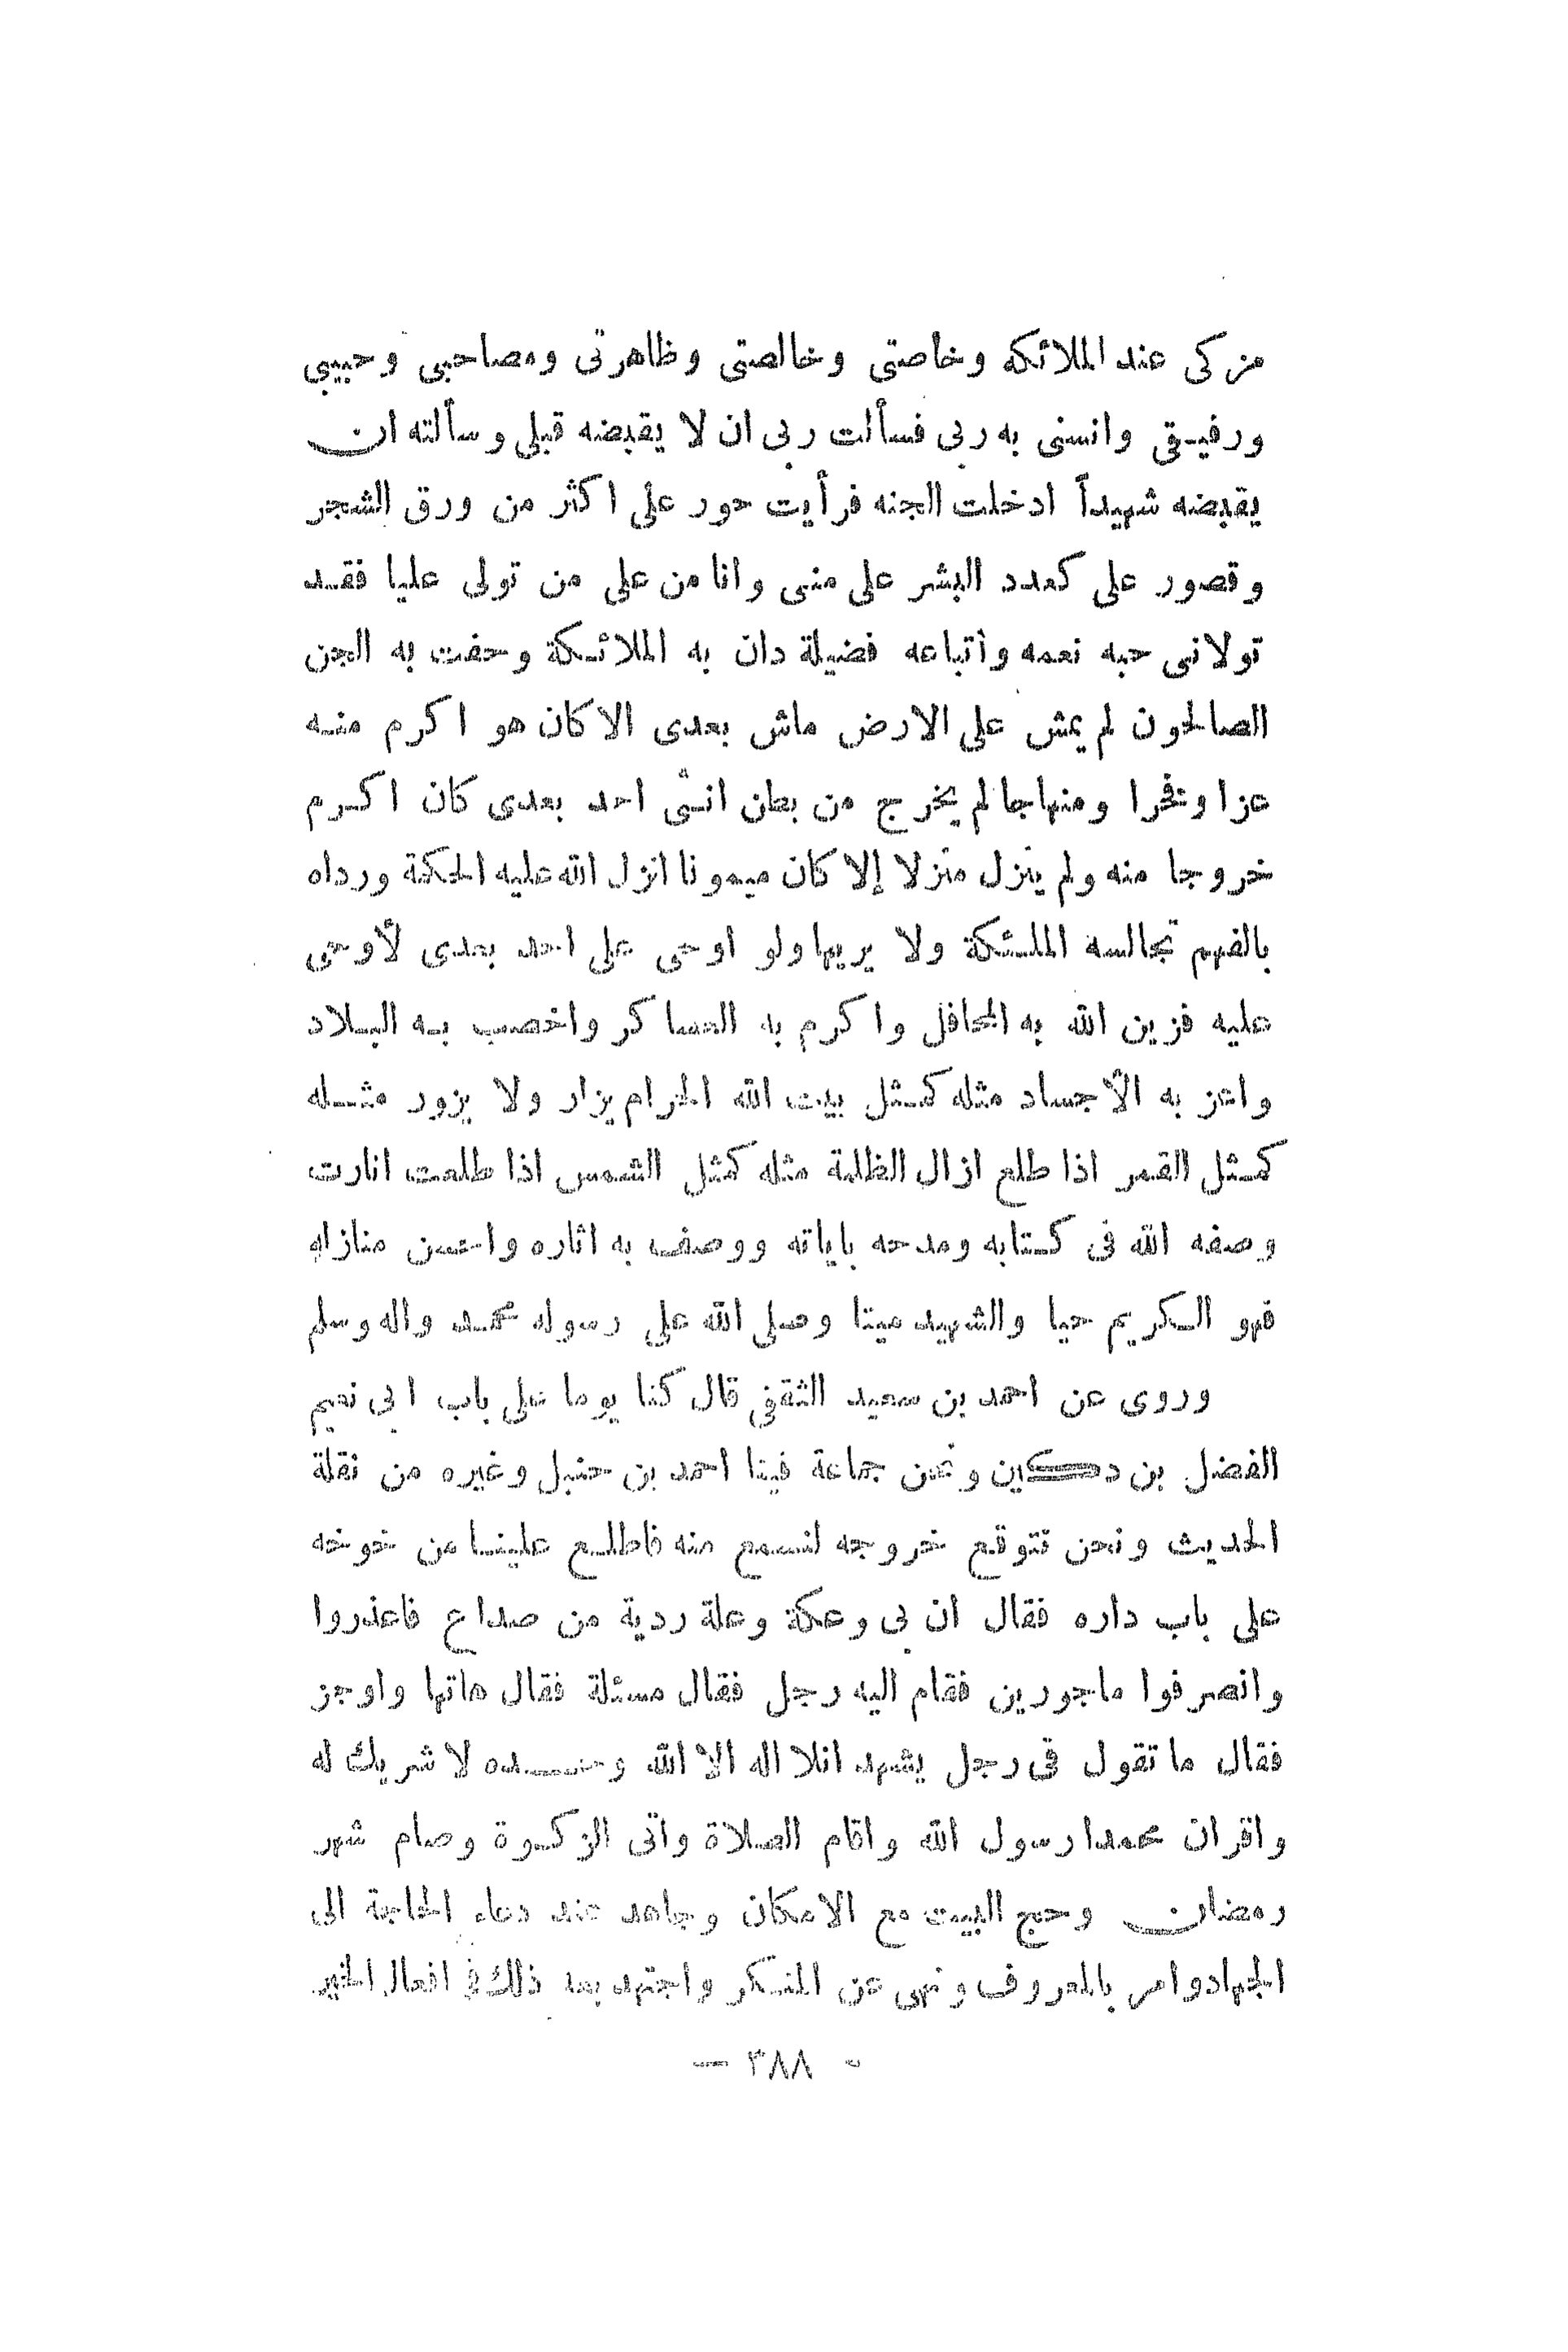 مزكى عند الملائكه وخاصتى وخالصتى وظاهرتى ومصاحبى وحبيبي
ورفيقي وانسنى به ربى فسألت ربى ان لا يقبضه قبلى وسألته ان
يقبضه شهيداً ادخلت الجنه فرأيت حور على اكثر من ورق الشجر
وقصور على كعدد البشر على منى وانا من على من تولى عليا فقد
تولانى حبه نعمه وأتباعه فضيلة دان به الملائكة وحفت به الجن
الصالحون لم يمش على الارض ماش بعدى الا كان هو اكرم منه
عزا وفخرا ومنهاجا لم يخرج من بطن انثى احد بعدى كان اكرم
خروجا منه ولم ينزل منزلا إلا كان ميمونا انزل الله عليه الحكمة ورداه
بالفهم تجالسه الملئكة ولا يريها ولو اوحى على احد بعدى لأوحى
عليه فزين الله به المحافل واكرم به العساكر واخصب به البلاد
واعز به الأجساد مثله كمثل بيت الله الحرام يزار ولا يزور مثله
كمثل القمر اذا طلع ازال الظلمة مثله كمثل الشمس اذا طلعت انارت
وصفه الله فى كتابه ومدحه باياته ووصف به اثاره واحسن منازله
فهو الكريم حيا والشهيد ميتا وصلى الله على رسوله محمد واله وسلم
وروى عن احمد بن سعيد الثقفي قال كنا يوما على باب ابى نعيم
الفضل بن دكين ونحن جماعة فينا احمد بن حنبل وغيره من نقلة
الحديث ونحن نتوقع خروجه لنسمع منه فاطلع علينا من خوخه
على باب داره فقال ان بى وعكة وعلة ردية من صداع فاعذروا
وانصرفوا ماجورين فقام اليه رجل فقال مسئلة فقال هاتها واوجز
فقال ما تقول فى رجل يشهد انلا اله الا الله وحده لا شريك له
واقر ان محمدا رسول الله واقام الصلاة وآتى الزكوة وصام شهر
رمضان وحج البيت مع الامكان وجاهد عند دعاء الحاجة الى
الجهاد وامر بالمعروف ونهى عن المنكر واجتهد بعد ذلك فى افعال الخير
- ٣٨٨ -